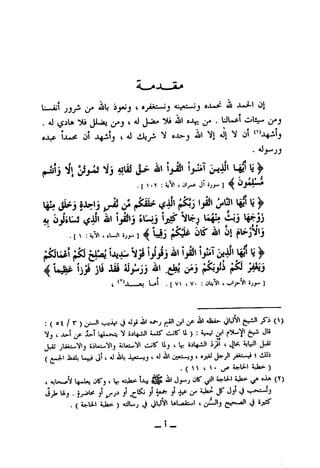 مقدمة
إن الحمد لله نحمده ونستعينه ونستغفره ، ونعوذ بالله من شرور أنفسنا
ومن سيئات أعمالنا . من يهده الله فلا مضل له ، ومن يضلل فلا هادي له .
وأشهد(١) أن لا إله إلا الله وحده لا شريك له ، وأشهد أن محمداً عبده
ورسوله .
﴿ يَا أَيُّهَا الَّذِينَ آمَنُوا اتَّقُوا اللهَ حَقَّ تُقَاتِهِ وَلَا تَمُوتُنَّ إِلَّا وَأَنْتُم
مُسْلِمُونَ ﴾ [ سورة آل عمران ، الآية : ١٠٢ ] .
﴿ يَا أَيُّهَا النَّاسُ اتَّقُوا رَبَّكُمُ الَّذِي خَلَقَكُم مِّن نَّفْسٍ وَاحِدَةٍ وَخَلَقَ مِنْهَا
زَوْجَهَا وَبَثَّ مِنْهُمَا رِجَالاً كَثِيراً وَنِسَاءً وَاتَّقُوا اللهَ الَّذِي تَسَاءَلُونَ بِهِ
وَالْأَرْحَامَ إِنَّ اللهَ كَانَ عَلَيْكُمْ رَقِيباً ﴾ [ سورة النساء ، الآية : ١ ] .
﴿ يَا أَيُّهَا الَّذِينَ آمَنُوا اتَّقُوا اللهَ وَقُولُوا قَوْلاً سَدِيداً يُصْلِحْ لَكُمْ أَعْمَالَكُمْ
وَيَغْفِرْ لَكُمْ ذُنُوبَكُمْ وَمَن يُطِعِ اللهَ وَرَسُولَهُ فَقَدْ فَازَ فَوْزاً عَظِيماً ﴾
[ سورة الأحزاب ، الآيتان : ٧٠ ، ٧١ ] . أما بعــد(٢) ،
(١) ذكر الشيخ الألباني حفظه الله عن ابن القيم رحمه الله قوله في تهذيب السنن ( ٣ / ٥٤ ) :
قال شيخ الإسلام ابن تيمية : ( لما كانت كلمة الشهادة لا يتحملها أحد عن أحد ، ولا
تقبل النيابة بحال ، أفرد الشهادة بها ، ولما كانت الاستعانة والاستعاذة والاستغفار تقبل
ذلك ؛ فيستغفر الرجل لغيره ، ويستعين الله له ، ويستعيذ بالله له ، أتى فيها بلفظ الجمع )
( خطبة الحاجة ص ١٠ ، ١١ ) .
(٢) هذه هي خطبة الحاجة التي كان رسول الله ﷺ يبدأ خطبته بها ، وكان يعلمها لأصحابه ،
وتُستحب في أول كل خطبة من عيدٍ أو جمعةٍ أو نكاحٍ أو درسٍ أو محاضرةٍ . ولها طرقٌ
كثيرة في الصحيح والسُّنن ، استقصاها الألباني في رسالته ( خطبة الحاجة ) .
— أ —